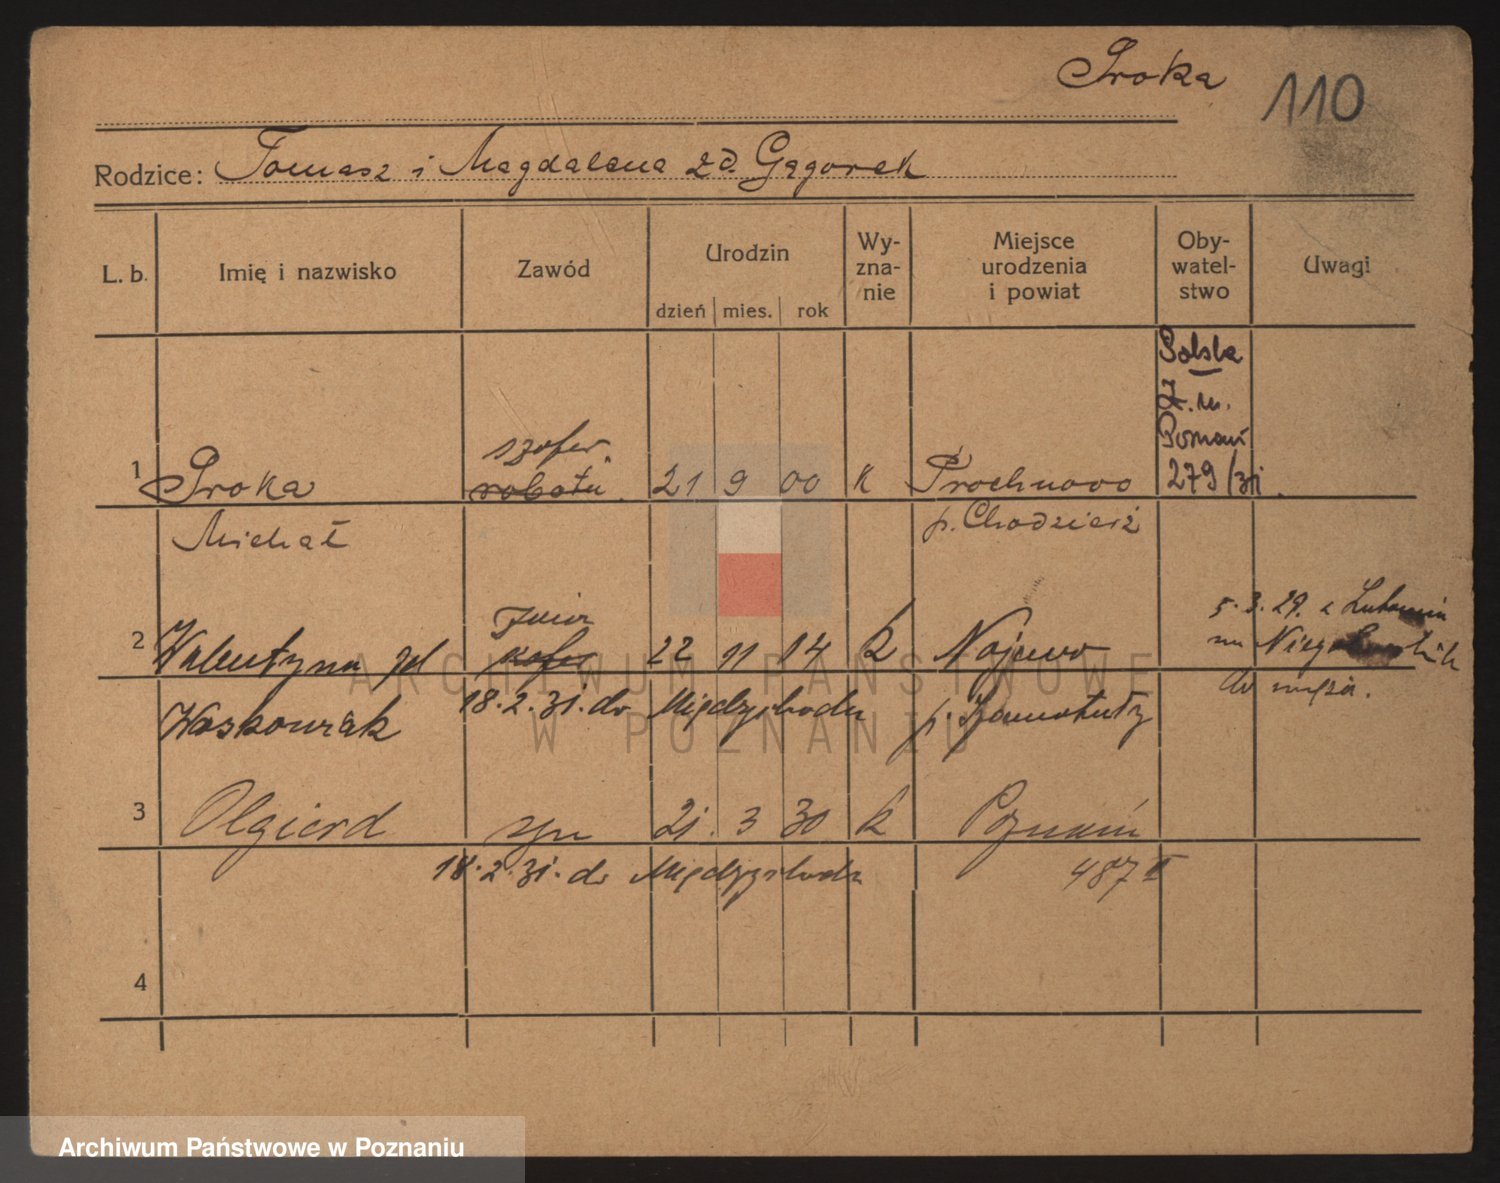 Proka 110
Rodzice: Tomasz i Magdalena zd. Gągorek
L. b. Imię i nazwisko Zawód Urodzin dzień mies. rok Wy-zna-nie Miejsce urodzenia i powiat Oby-watel-stwo Uwagi
Polska
Z. m.
Poznań
279/31.
szofer.
1 Proka robotn. 21 9 00 k Prochnowo
Michał p. Chodzież
5.3.29. z
2 Walentyna zd 22 11 14 k Nojewo na
18.2.31. do Międzychodu do męża.
Waskowiak p. Szamotuły
3 Olgierd syn 21. 3 30 k Poznań
18.2.31. do Międzychodu 487 II
4
ARCHIWUM PAŃSTWOWE
W POZNANIU
Archiwum Państwowe w Poznaniu